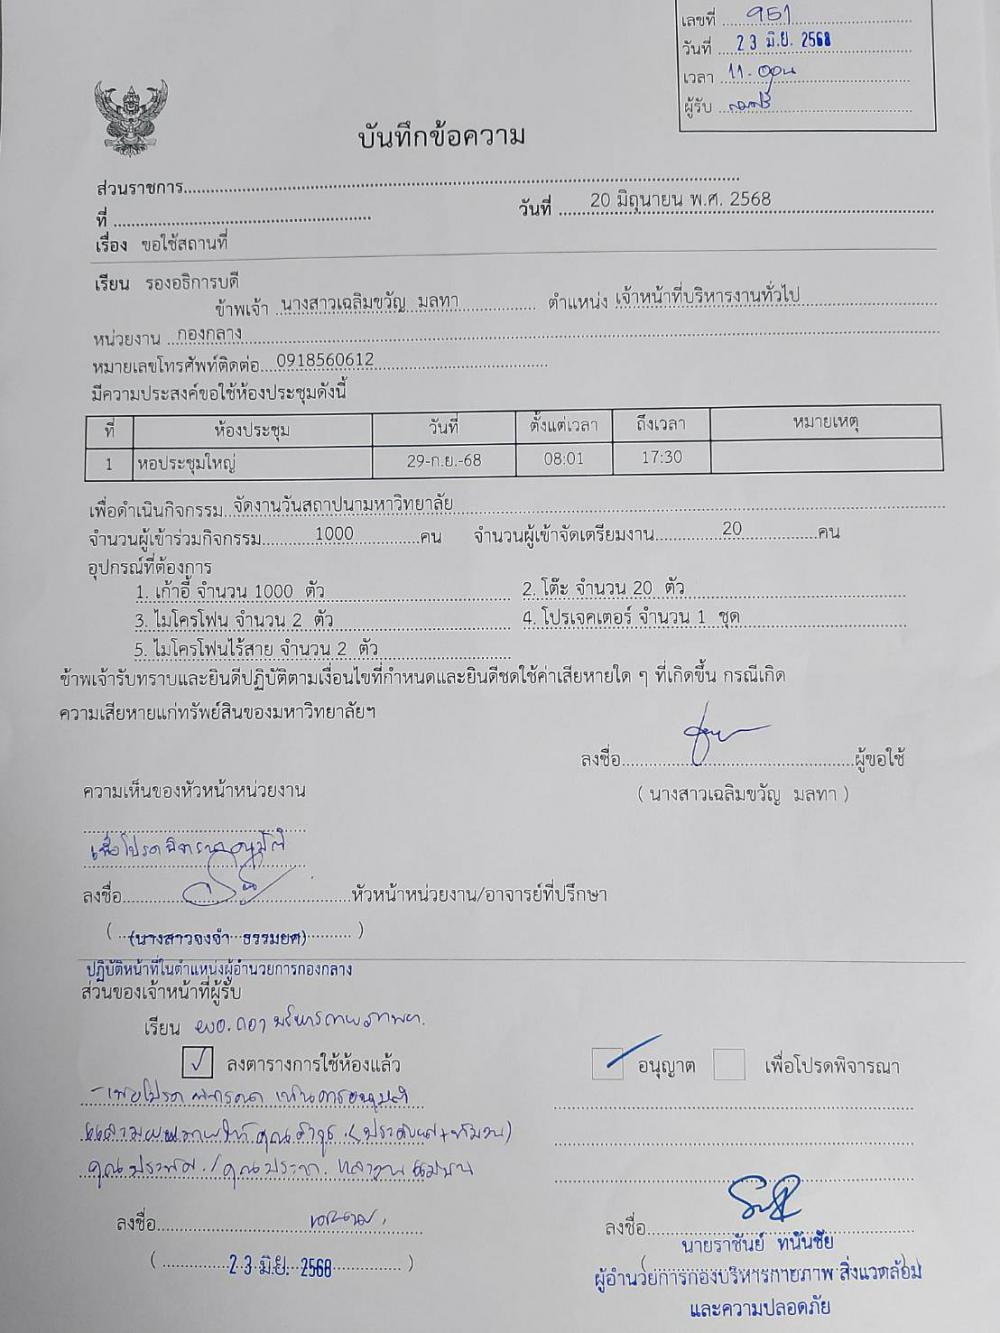 เลขที่ 951
วันที่ 23 มิ.ย. 2568
เวลา 11.00น
ผู้รับ
บันทึกข้อความ
ส่วนราชการ
ที่ วันที่ 20 มิถุนายน พ.ศ. 2568
เรื่อง ขอใช้สถานที่
เรียน รองอธิการบดี
ข้าพเจ้า นางสาวเฉลิมขวัญ มลทา ตำแหน่ง เจ้าหน้าที่บริหารงานทั่วไป
หน่วยงาน กองกลาง
หมายเลขโทรศัพท์ติดต่อ 0918560612
มีความประสงค์ขอใช้ห้องประชุมดังนี้
ที่ ห้องประชุม วันที่ ตั้งแต่เวลา ถึงเวลา หมายเหตุ
1 หอประชุมใหญ่ 29-ก.ย.-68 08:01 17:30
เพื่อดำเนินกิจกรรม จัดงานวันสถาปนามหาวิทยาลัย
จำนวนผู้เข้าร่วมกิจกรรม 1000 คน จำนวนผู้เข้าจัดเตรียมงาน 20 คน
อุปกรณ์ที่ต้องการ
1. เก้าอี้ จำนวน 1000 ตัว 2. โต๊ะ จำนวน 20 ตัว
3. ไมโครโฟน จำนวน 2 ตัว 4. โปรเจคเตอร์ จำนวน 1 ชุด
5. ไมโครโฟนไร้สาย จำนวน 2 ตัว
ข้าพเจ้ารับทราบและยินดีปฏิบัติตามเงื่อนไขที่กำหนดและยินดีชดใช้ค่าเสียหายใด ๆ ที่เกิดขึ้น กรณีเกิด
ความเสียหายแก่ทรัพย์สินของมหาวิทยาลัยฯ
ลงชื่อ ผู้ขอใช้
( นางสาวเฉลิมขวัญ มลทา )
ความเห็นของหัวหน้าหน่วยงาน
เพื่อโปรดพิจารณาอนุมัติ
ลงชื่อ หัวหน้าหน่วยงาน/อาจารย์ที่ปรึกษา
( (นางสาวจงจำ ธรรมยศ) )
ปฏิบัติหน้าที่ในตำแหน่งผู้อำนวยการกองกลาง
ส่วนของเจ้าหน้าที่ผู้รับ
เรียน ผอ.กองบริหารกายภาพฯ
ลงตารางการใช้ห้องแล้ว อนุญาต เพื่อโปรดพิจารณา
- เพื่อโปรดพิจารณา
ลงชื่อ ลงชื่อ
( 23 มิ.ย. 2568 ) นายราชันย์ ทนันชัย
ผู้อำนวยการกองบริหารกายภาพ สิ่งแวดล้อม
และความปลอดภัย